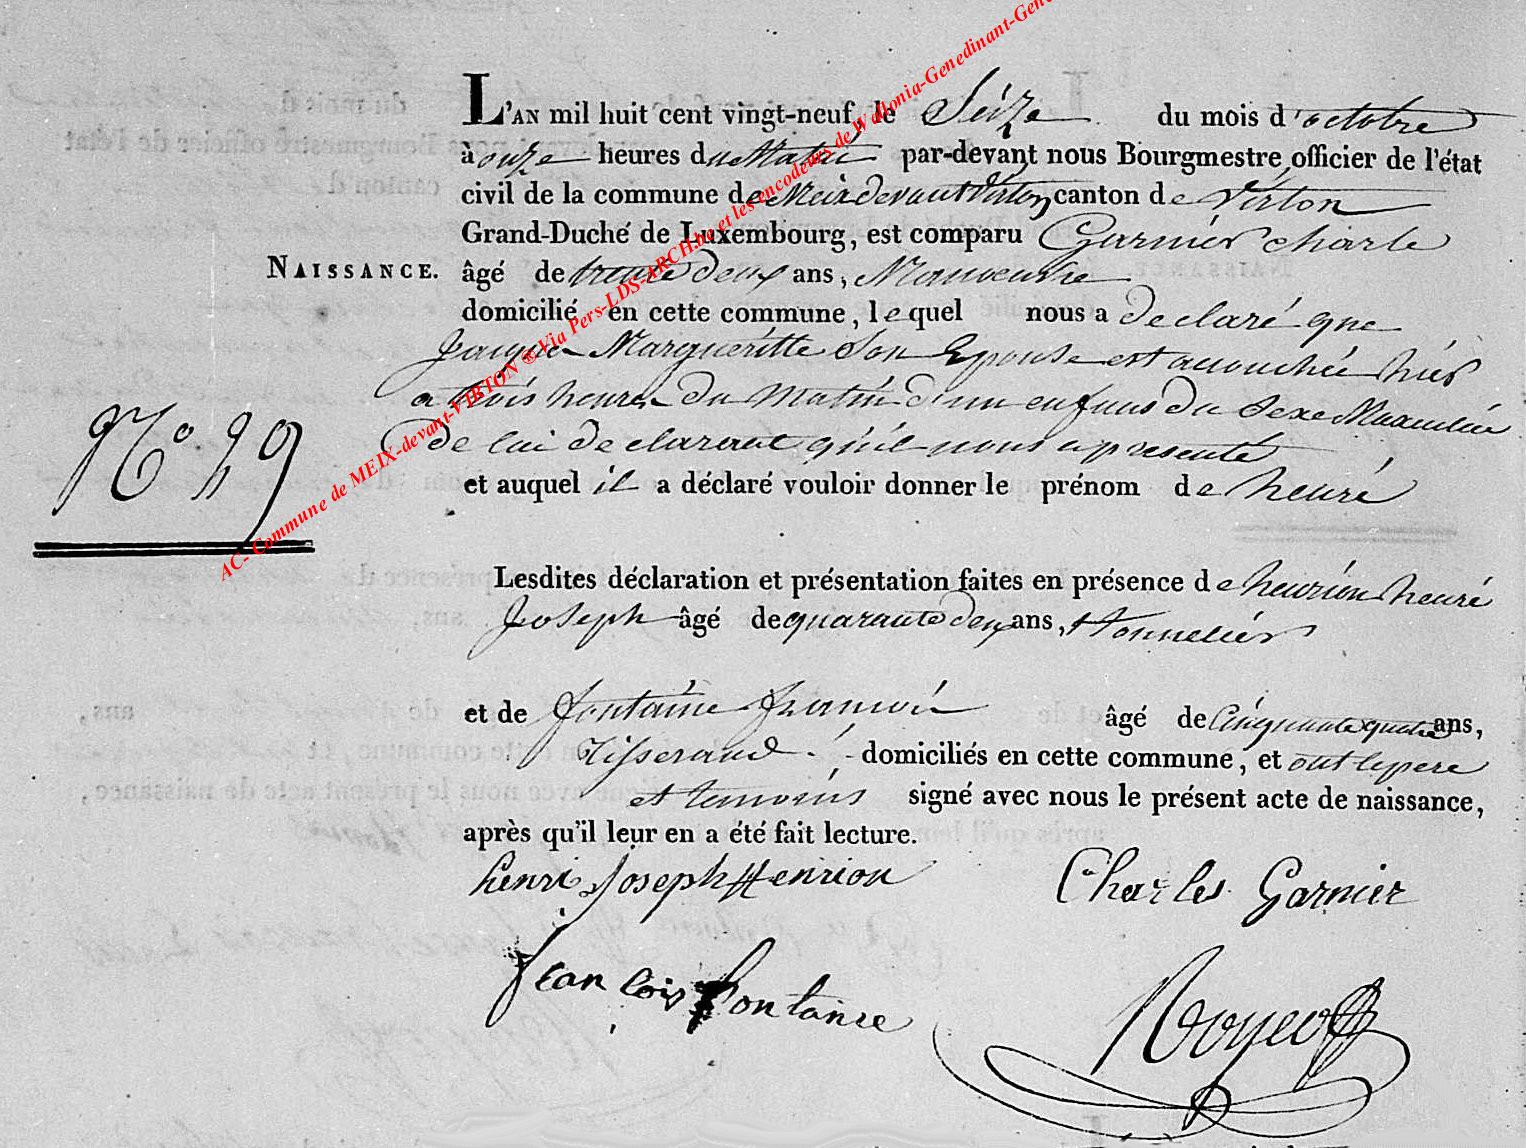 L'AN mil huit cent vingt-neuf, le Séize du mois d'octobre
à onze heures du Matin par-devant nous Bourgmestre, officier de l'état
civil de la commune de Meix devant Virton canton de Virton
Grand-Duché de Luxembourg, est comparu Garniér charle
NAISSANCE. âgé de trente deux ans, Manoeuvre
domicilié en cette commune, lequel nous a déclaré que
Marguéritte Son Epouse est accouchée hiér
a trois heures du Matin d'un enfans du Sexe Masculin
de lui declarant qu'il nous a presenté
No 29
et auquel il a déclaré vouloir donner le prénom de henri
Lesdites déclaration et présentation faites en présence de henrion henri
Joseph âgé de quarante deux ans, tonneliér
et de fontaine francois âgé de Cinquante quatre ans,
Tisserand domiciliés en cette commune, et ont le pere
et temoins signé avec nous le présent acte de naissance,
après qu'il leur en a été fait lecture.
henri Joseph Henrion Charles Garnier
francois fontaine
AC- Commune de MEIX-devant-VIRTON ® Via Pers-LDS-ARCH.be et les encodeurs de Wallonia-Genedinant-Gene